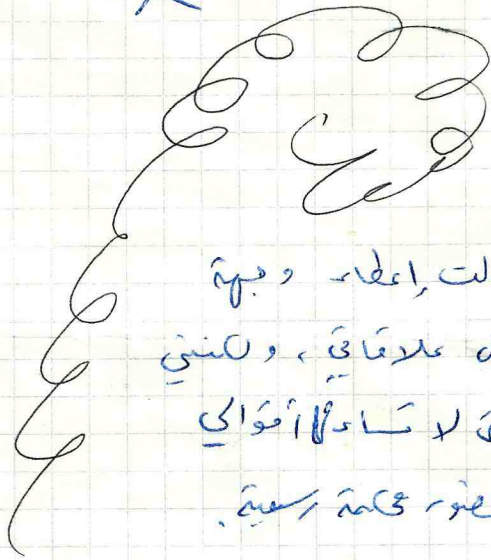 لت إعطاء وجهة
علاقاتي، ولكنني
لا تساء أقوالي
محكمة رسمية.